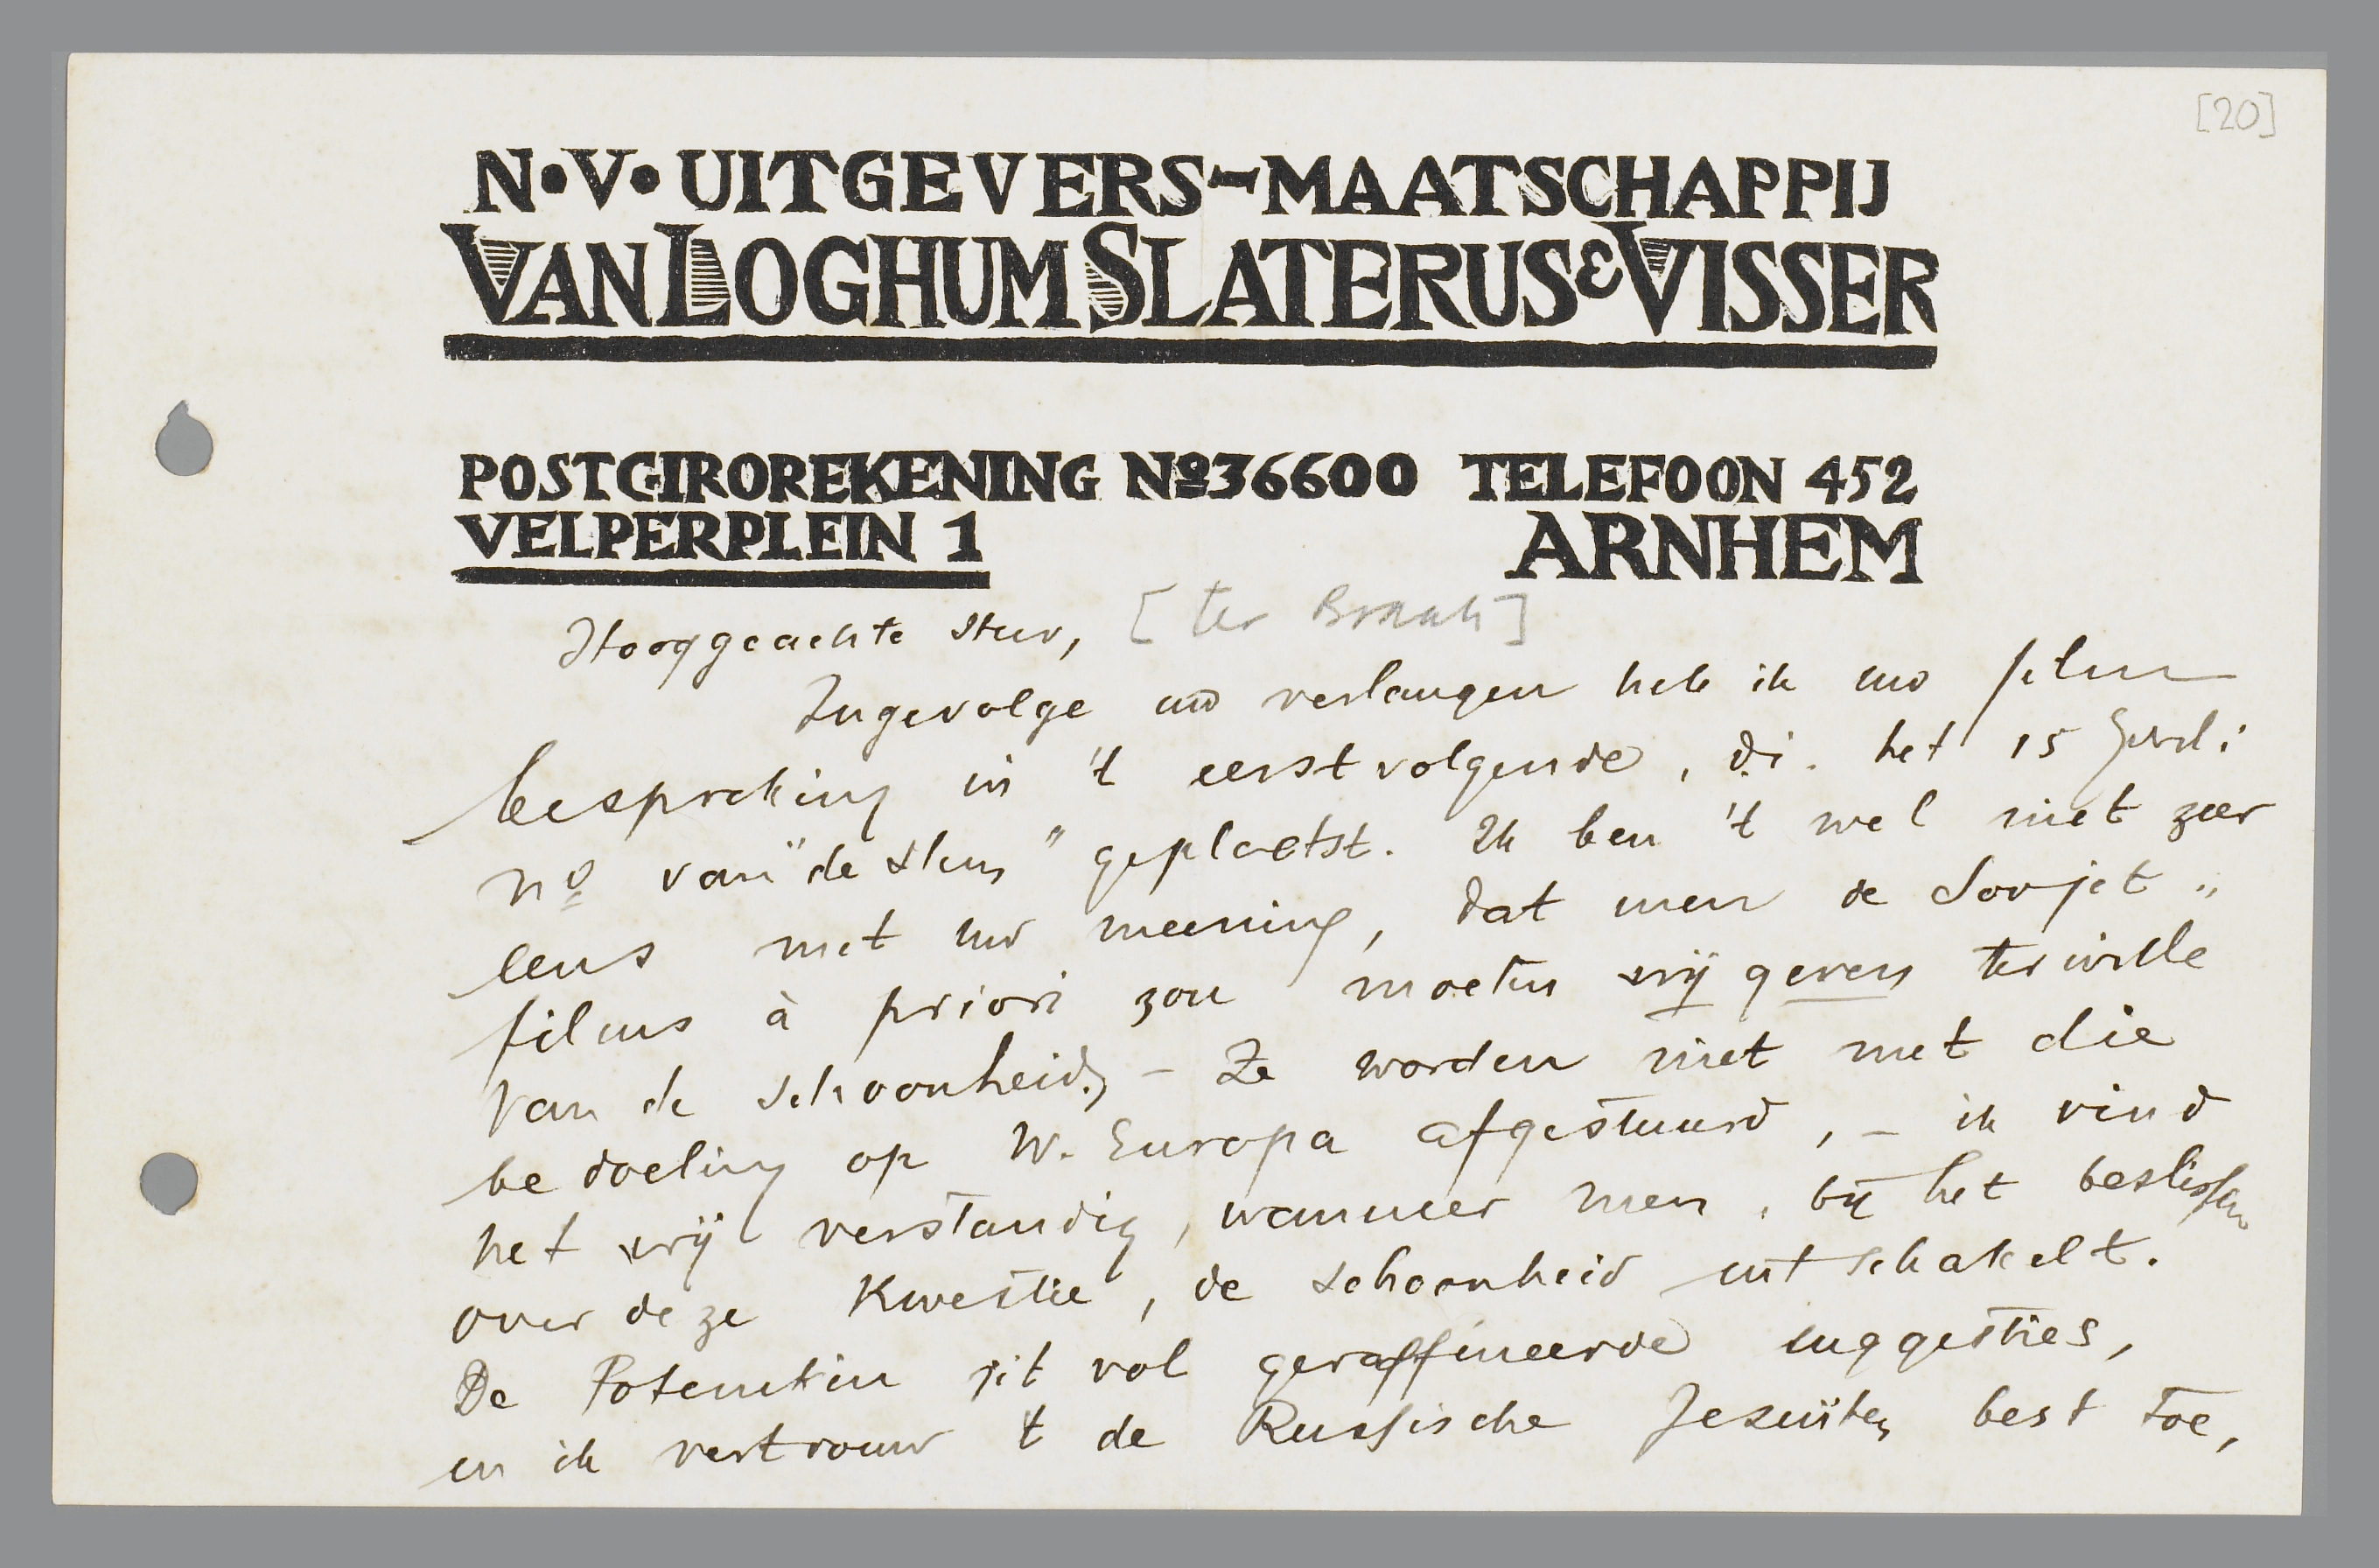 [20]
N·V· UITGEVERS-MAATSCHAPPIJ
VAN LOGHUM SLATERUS & VISSER
POSTGIROREKENING Nº 36600 TELEFOON 452
VELPERPLEIN 1 ARNHEM
Hooggeachte Heer, [ter Braak]
Ingevolge uw verlangen heb ik uw film
bespreking in 't eerstvolgende, d.i. het 15 Juli
nº van "de Stem" geplaatst. Ik ben 't wel niet zeer
eens met uw meening, dat men de Sovjet-
films à priori zou moeten vrij geven terwille
van de schoonheid, - Ze worden niet met die
bedoeling op W. Europa afgestuurd, - ik vind
het vrij verstandig, wanneer men, bij het beslissen
over deze kwestie, de schoonheid uitschakelt.
De Potemkin zit vol geraffineerde suggesties,
en ik vertrouw 't de Russische Jezuïten best toe,